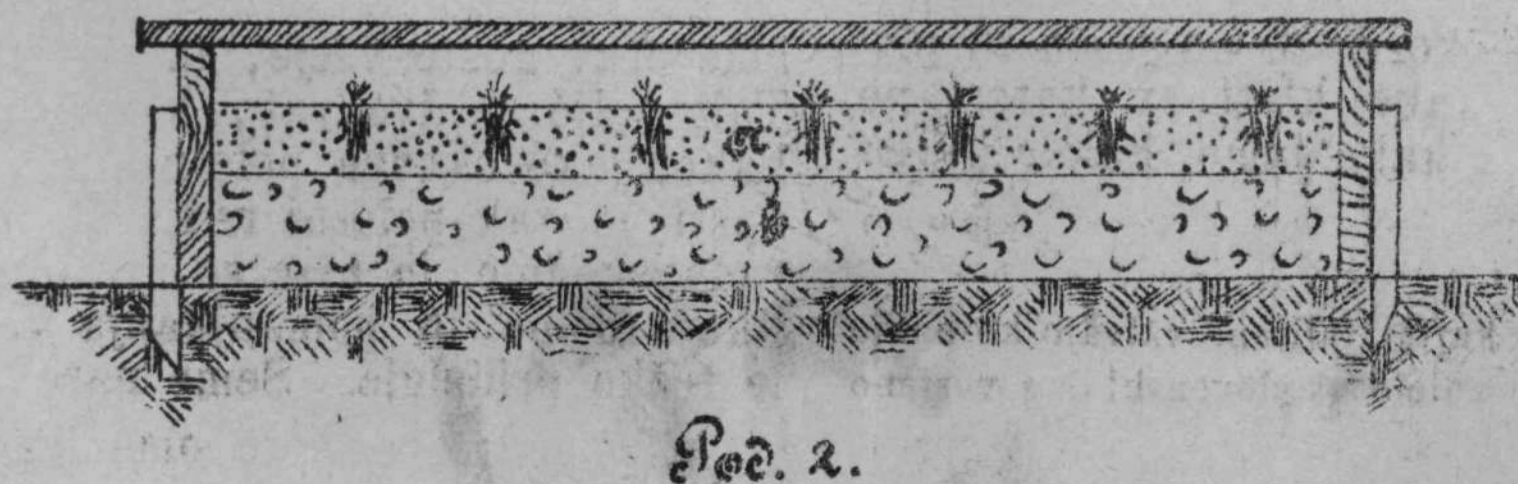 a
b
Pod. 2.